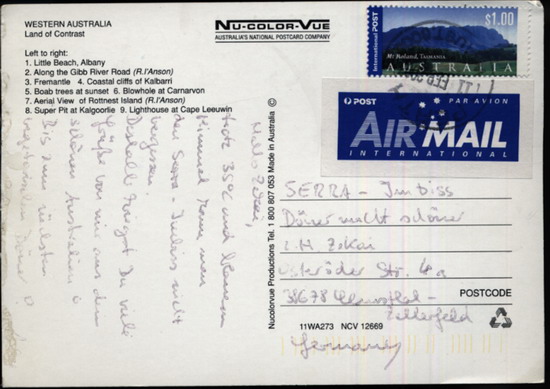 WESTERN AUSTRALIA
Land of Contrast
Left to right:
1. Little Beach, Albany
2. Along the Gibb River Road (R.I'Anson)
3. Fremantle 4. Coastal cliffs of Kalbarri
5. Boab trees at sunset 6. Blowhole at Carnarvon
7. Aerial View of Rottnest Island (R.I'Anson)
8. Super Pit at Kalgoorlie 9. Lighthouse at Cape Leeuwin
NU-COLOR-VUE
AUSTRALIA'S NATIONAL POSTCARD COMPANY
International POST
$1.00
Mt Roland, Tasmania
AUSTRALIA
POST
PAR AVION
AIR MAIL
INTERNATIONAL
Hallo
trotz 35°C und
Himmel kann man
den Serra - Imbiss nicht
vergessen.
Deshalb kriegst Du viele
Grüße von mir aus dem
schönen Australien
Bis zum nächsten
Döner
Nucolorvue Productions Tel. 1 800 807 053 Made in Australia ©
SERRA - Imbiss
Döner macht schöner
z.H. Zekai
Osteröder Str. 4a
38678 Clausthal-
Zellerfeld
POSTCODE
11WA273 NCV 12669
Germany